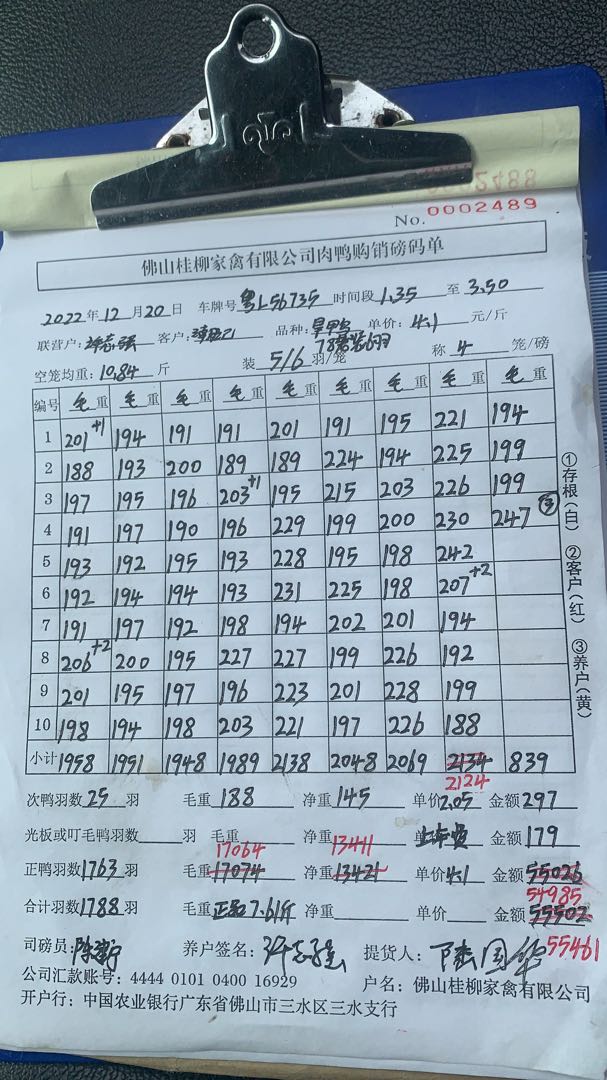 0002488
No. 0002489
佛山桂柳家禽有限公司肉鸭购销磅码单
2022年12月20日 车牌号粤L56735 时间段1.35至3.50
联营户: 客户: 品种: 单价:4.1元/斤
空笼均重:10.84斤 装5/6羽/笼 称4笼/磅
编号 毛重 毛重 毛重 毛重 毛重 毛重 毛重 毛重 毛重
1 201+1 194 191 191 201 191 195 221 194
2 188 193 200 189 189 224 194 225 199
3 197 195 196 203+1 195 215 203 226 199
4 191 197 190 196 229 199 200 230 247③
5 193 192 195 193 228 195 198 242
6 192 194 194 193 231 225 198 207+2
7 191 197 192 198 194 202 201 194
8 206+2 200 195 227 227 199 226 192
9 201 195 197 196 223 201 228 199
10 198 194 198 203 221 197 226 188
小计 1958 1951 1948 1989 2138 2048 2069 2134 839
2124
①存根(白) ②客户(红) ③养户(黄)
次鸭羽数25羽 毛重188 净重145 单价2.05 金额297
光板或叮毛鸭羽数 羽 毛重 净重 金额179
17064 13411
正鸭羽数1763羽 毛重17074 净重13421 单价4.1 金额55026
54985
合计羽数1788羽 毛重正品7.61斤 净重 单价 金额55502
55461
司磅员: 养户签名: 提货人:陈国华
公司汇款账号: 4444 0101 0400 16929 户名: 佛山桂柳家禽有限公司
开户行: 中国农业银行广东省佛山市三水区三水支行